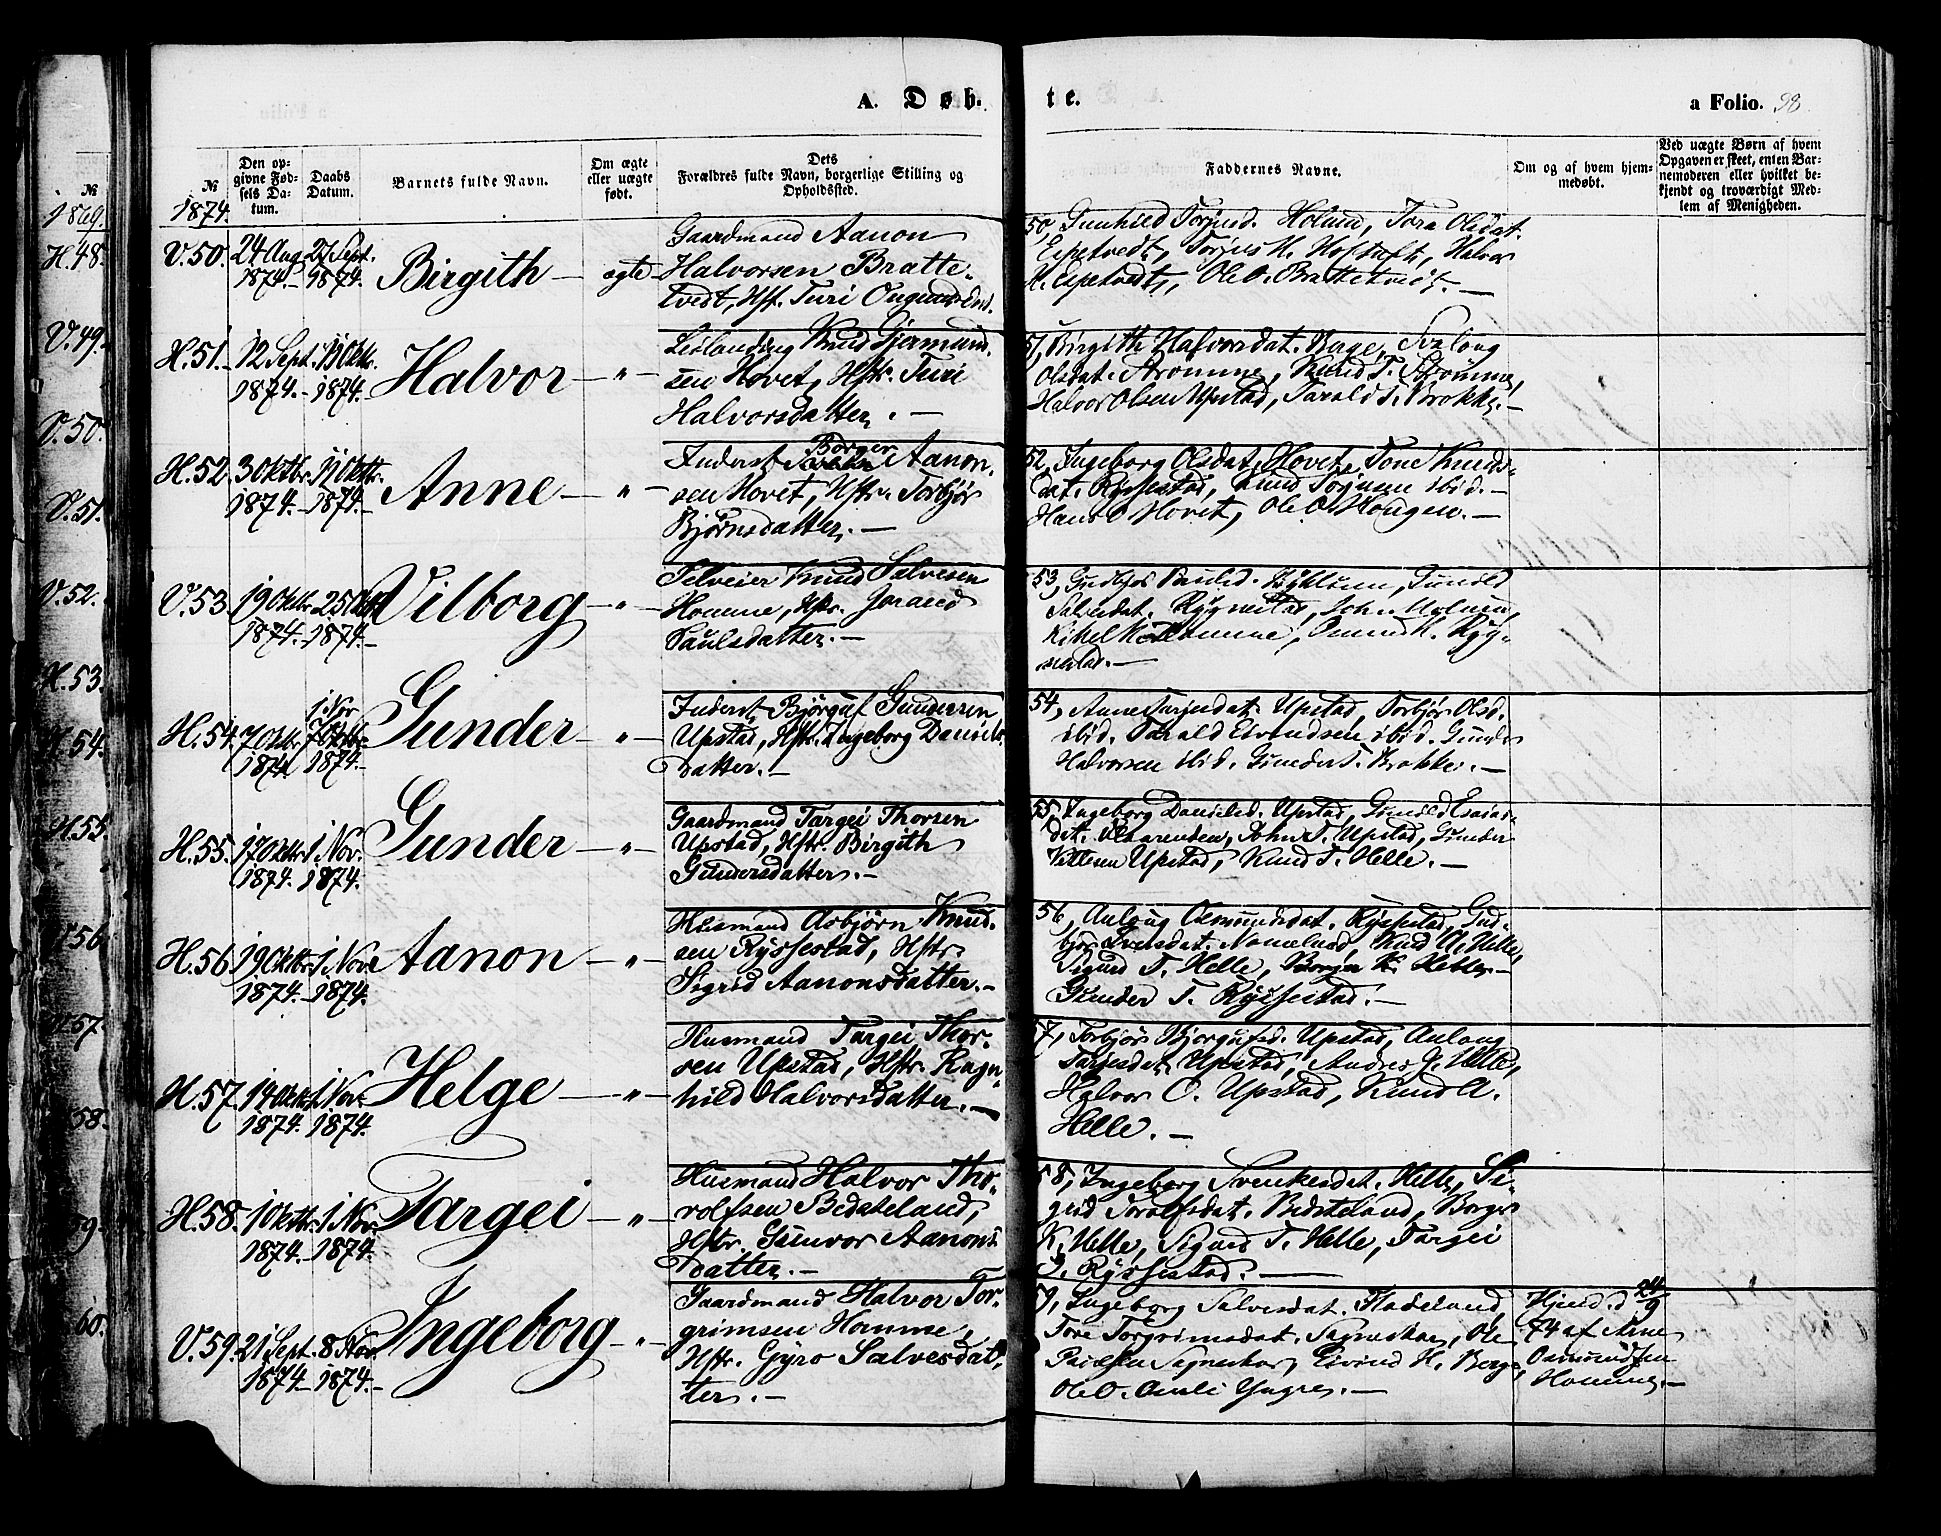 A. Døb-
te.
a Folio. 98.
№
1869.
H. 48.
V. 49.
V. 50.
V. 51.
V. 52.
H. 53.
H. 54.
H. 55.
56.
57.
58.
59.
60.
№
1874.
Den op-
givne Fød-
sels Da-
tum.
Daabs
Datum.
Barnets fulde Navn.
Om ægte
eller uægte
født.
Dets
Forældres fulde Navn, borgerlige Stilling og
Opholdssted.
Faddernes Navne.
Om og af hvem hjem-
medøbt.
Ved uægte Børn af hvem
Opgaven er skeet, enten Bar-
nemoderen eller hvilket be-
kjendt og troværdigt Med-
lem af Menigheden.
V. 50. 24 Aug. 27 Sept.
1874. 1874.
Birgith
ægte
Gaardmand Aanon
Halvorsen Bratte-
tvedt, Hst. Turi
50, Gunhild Torjusd. Holum, Tora Olsdat.
Espetvedt, Torjus H. Halvor
H. Espetvedt, Ole O. Brattetvedt.
H. 51. 12 Sept. 11 Oktbr.
1874. 1874.
Halvor — " —
Leilænding Knud Gjermund-
sen Hovet, Hstr. Turi
Halvorsdatter.
51, Birgith Halvorsdat. Svalaug
Olsdat. Strömme, Knud T. Strömme,
Halvor Olsen Upstad, Tarald T. Brokke.
H. 52. 3 Oktbr. 11 Oktbr.
1874. 1874.
Anne — " —
Inderst Borger Aanon-
sen Hovet, Hstr. Torbjör
Björnsdatter.
52, Ingeborg Olsdat. Hovet, Tone Knuds-
dat. Ryssestad, Knud ibid.
Hans O. Hovet, Ole O. Haugen.
V. 53. 19 Oktbr. 25 Oktbr.
1874. 1874.
Vilborg — " —
Selveier Knud Salvesen
Homme, Hstr. Jorand
Paulsdatter.
53, Paulsd. Gunild
Salvesdat. Rygnestad, John
Kittel K. Homme, Omund K. Ryg-
nestad.
H. 54. 7 Oktbr. 1 Nov.
1874. 1874.
Gunder — " —
Inderst Björguf Gundersen
Upstad, Hstr. Ingeborg Daniels-
datter.
54, Anne Tarjeidat. Upstad, Torbjör Olsd.
ibid. Tarald Eivindsen ibid. Gunder
Halvorsen ibid. Gunder T. Brokke.
H. 55. 17 Oktbr. 1 Nov.
1874. 1874.
Gunder — " —
Gaardmand Targei Thorsen
Upstad, Hstr. Birgith
Gundersdatter.
55, Ingeborg Danielsd. Upstad, Gunild Esaias-
dat. John T. Upstad, Gunder
Kittelsen Upstad, Knud T. Helle.
H. 56. 19 Oktbr. 1 Nov.
1874. 1874.
Aanon — " —
Husmand Asbjørn Knud-
sen Ryssestad, Hstr.
Sigrid Aanonsdatter.
56, Aulaug Osmundsdat. Ryssestad, Gud-
björ Knud A. Helle,
Sigurd T. Helle, Borger K. Helle,
Gunder T. Ryssestad.
H. 57. 14 Oktbr. 1 Nov.
1874. 1874.
Helge — " —
Husmand Targei Thor-
sen Upstad, Hstr. Ragn-
hild Halvorsdatter.
57, Torbjör Bjørgufsd. Upstad, Aulaug
Tarjeidat. Upstad, Andres J. Helle,
Halvor O. Upstad, Knud A.
Helle.
H. 58. 1 Oktbr. 1 Nov.
1874. 1874.
Targei — " —
Husmand Halvor Tho-
rolfsen Bedsteland,
Hstr. Gunvor Aanons-
datter.
58, Ingeborg Svenkesdat. Helle, Si-
grid Toralfsdat. Bedsteland, Borger
K. Helle, Sigurd T. Helle, Targei
G. Ryssestad.
V. 59. 21 Sept. 8 Nov.
1874. 1874.
Ingeborg — " —
Gaardmand Halvor Tor-
grimsen Homme,
Hstr. Gyro Salvesdat-
ter.
59, Ingeborg Salvesdat. Fladeland,
Tore Torgrimsdat. Ole
Paulsen Eivind H. Berge,
Ole O.
Hjemd. d 24/9
74 af Arne
Osmundsen
Homme.